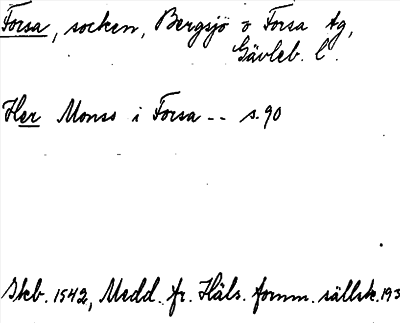 Forsa, socken, Bergsjö o Forsa tg,
Gävleb. l.
Her Monso i Forsa -- s. 90
Skb. 1542, Medd. fr. Häls. fornm. sällsk. 193